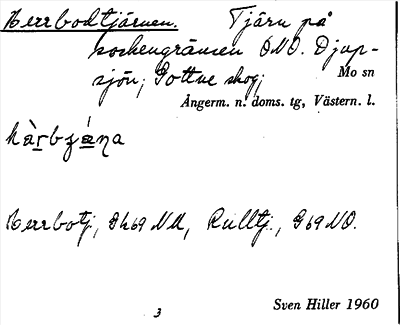 Herrbodtjärnen. Tjärn på
sockengränsen ONO. Djup-
sjön; Gottne skog; Mo sn
Ångerm. n. doms. tg, Västern. l.
hàrbʒána
Herrbotj., Gh69 NU, Rulltj., G69 NO.
3 Sven Hiller 1960